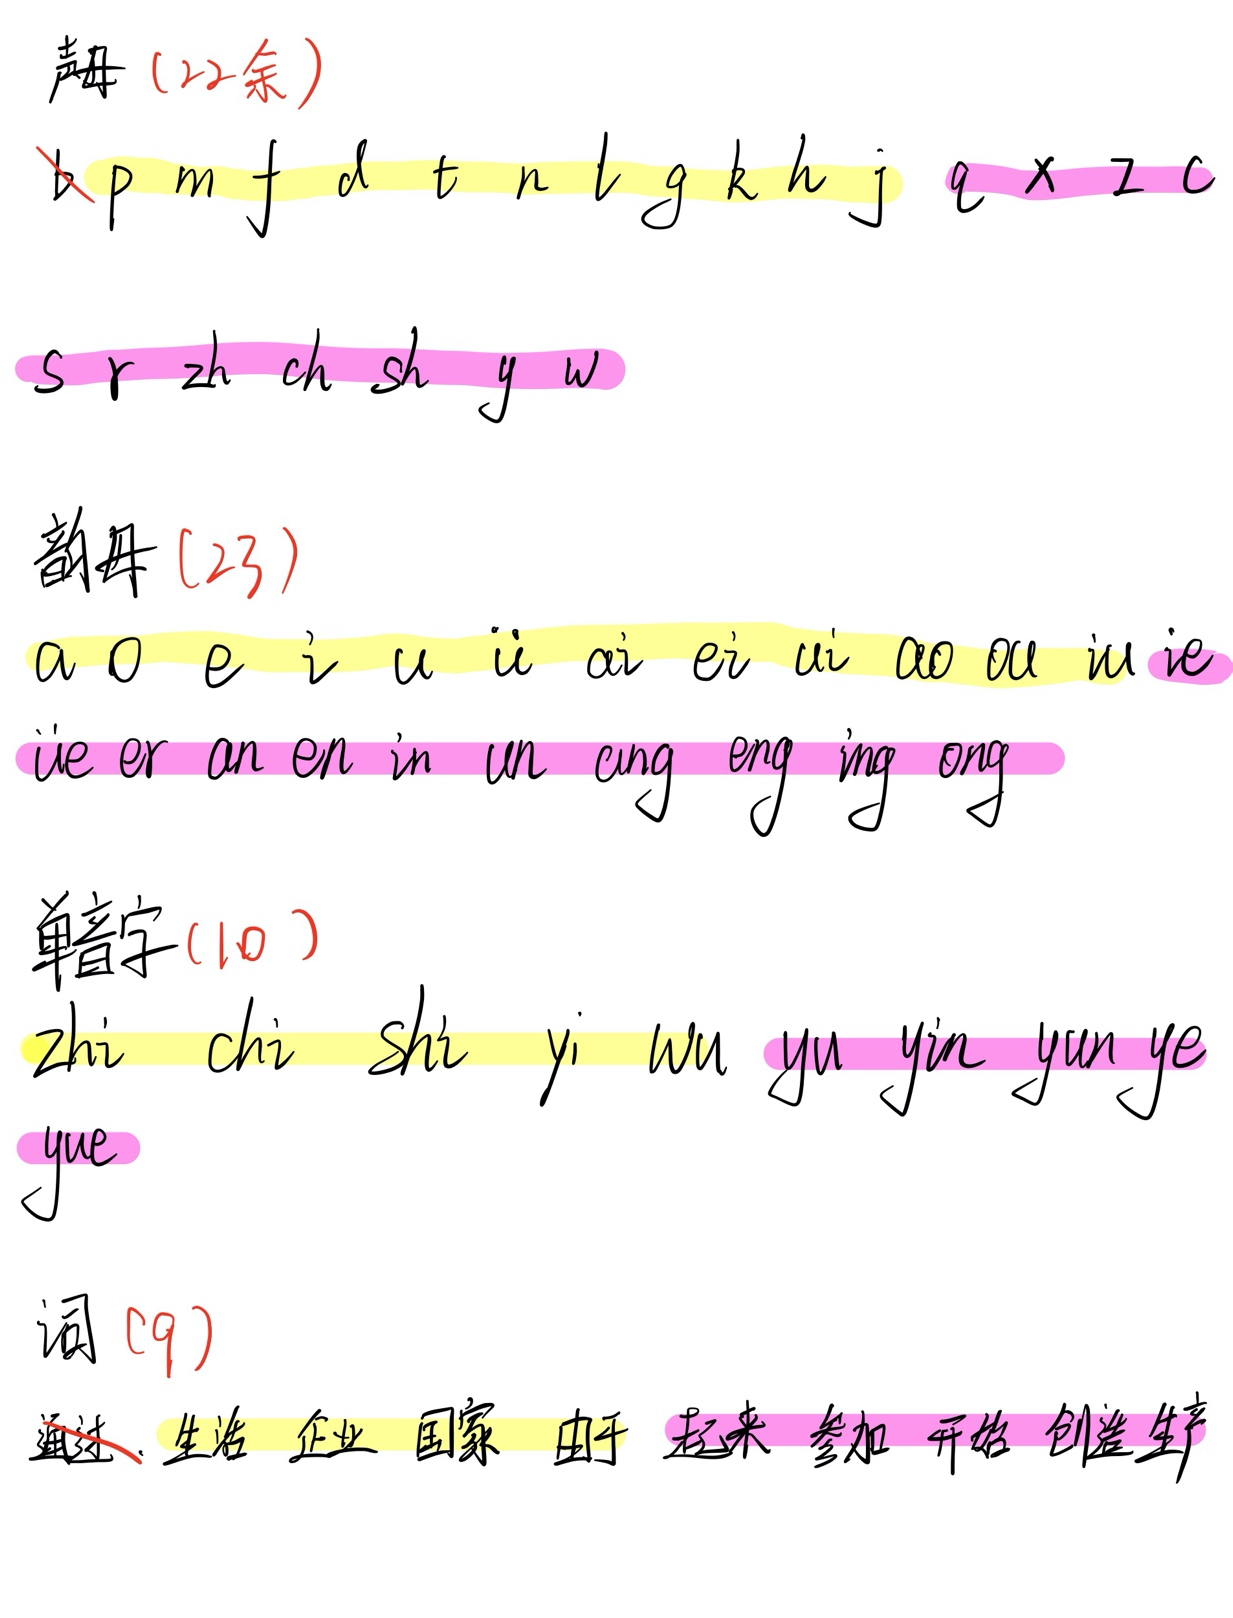 声母（22余）
b p m f d t n l g k h j q x z c
s r zh ch sh y w
韵母（23）
a o e i u ü ai ei ui ao ou iu ie
üe er an en in un ang eng ing ong
单音字（10）
zhi chi shi yi wu yu yin yun ye
yue
词（9）
通过、生活 企业 国家 由于 起来 参加 开始 创造 生产